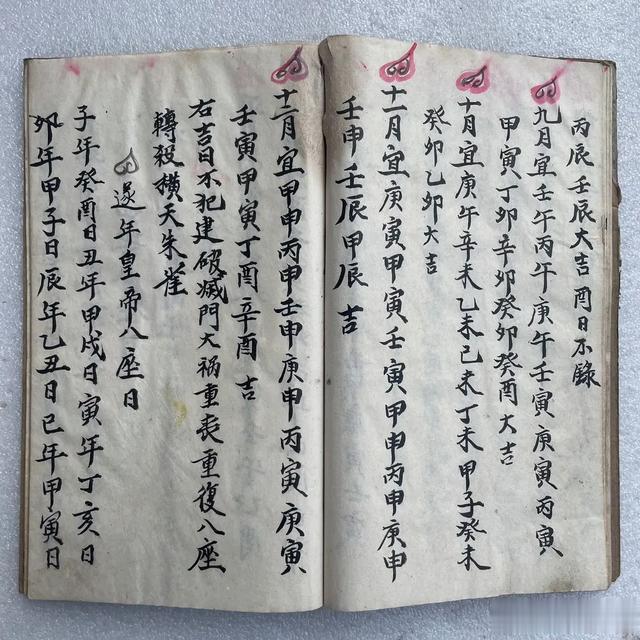 丙辰壬辰大吉酉日不録
九月宜壬午丙午庚午壬寅庚寅丙寅
甲寅丁卯辛卯癸卯癸酉大吉
十月宜庚午辛未乙未己未丁未甲子癸未
癸卯乙卯大吉
十一月宜庚寅甲寅壬寅甲申丙申庚申
壬申壬辰甲辰吉
十二月宜甲申丙申壬申庚申丙寅庚寅
壬寅甲寅丁酉辛酉吉
右吉日不犯建破滅門大禍重喪重復八座
轉殺橫天朱雀
逐年皇帝八座日
子年癸酉日丑年甲戌日寅年丁亥日
卯年甲子日辰年乙丑日巳年甲寅日